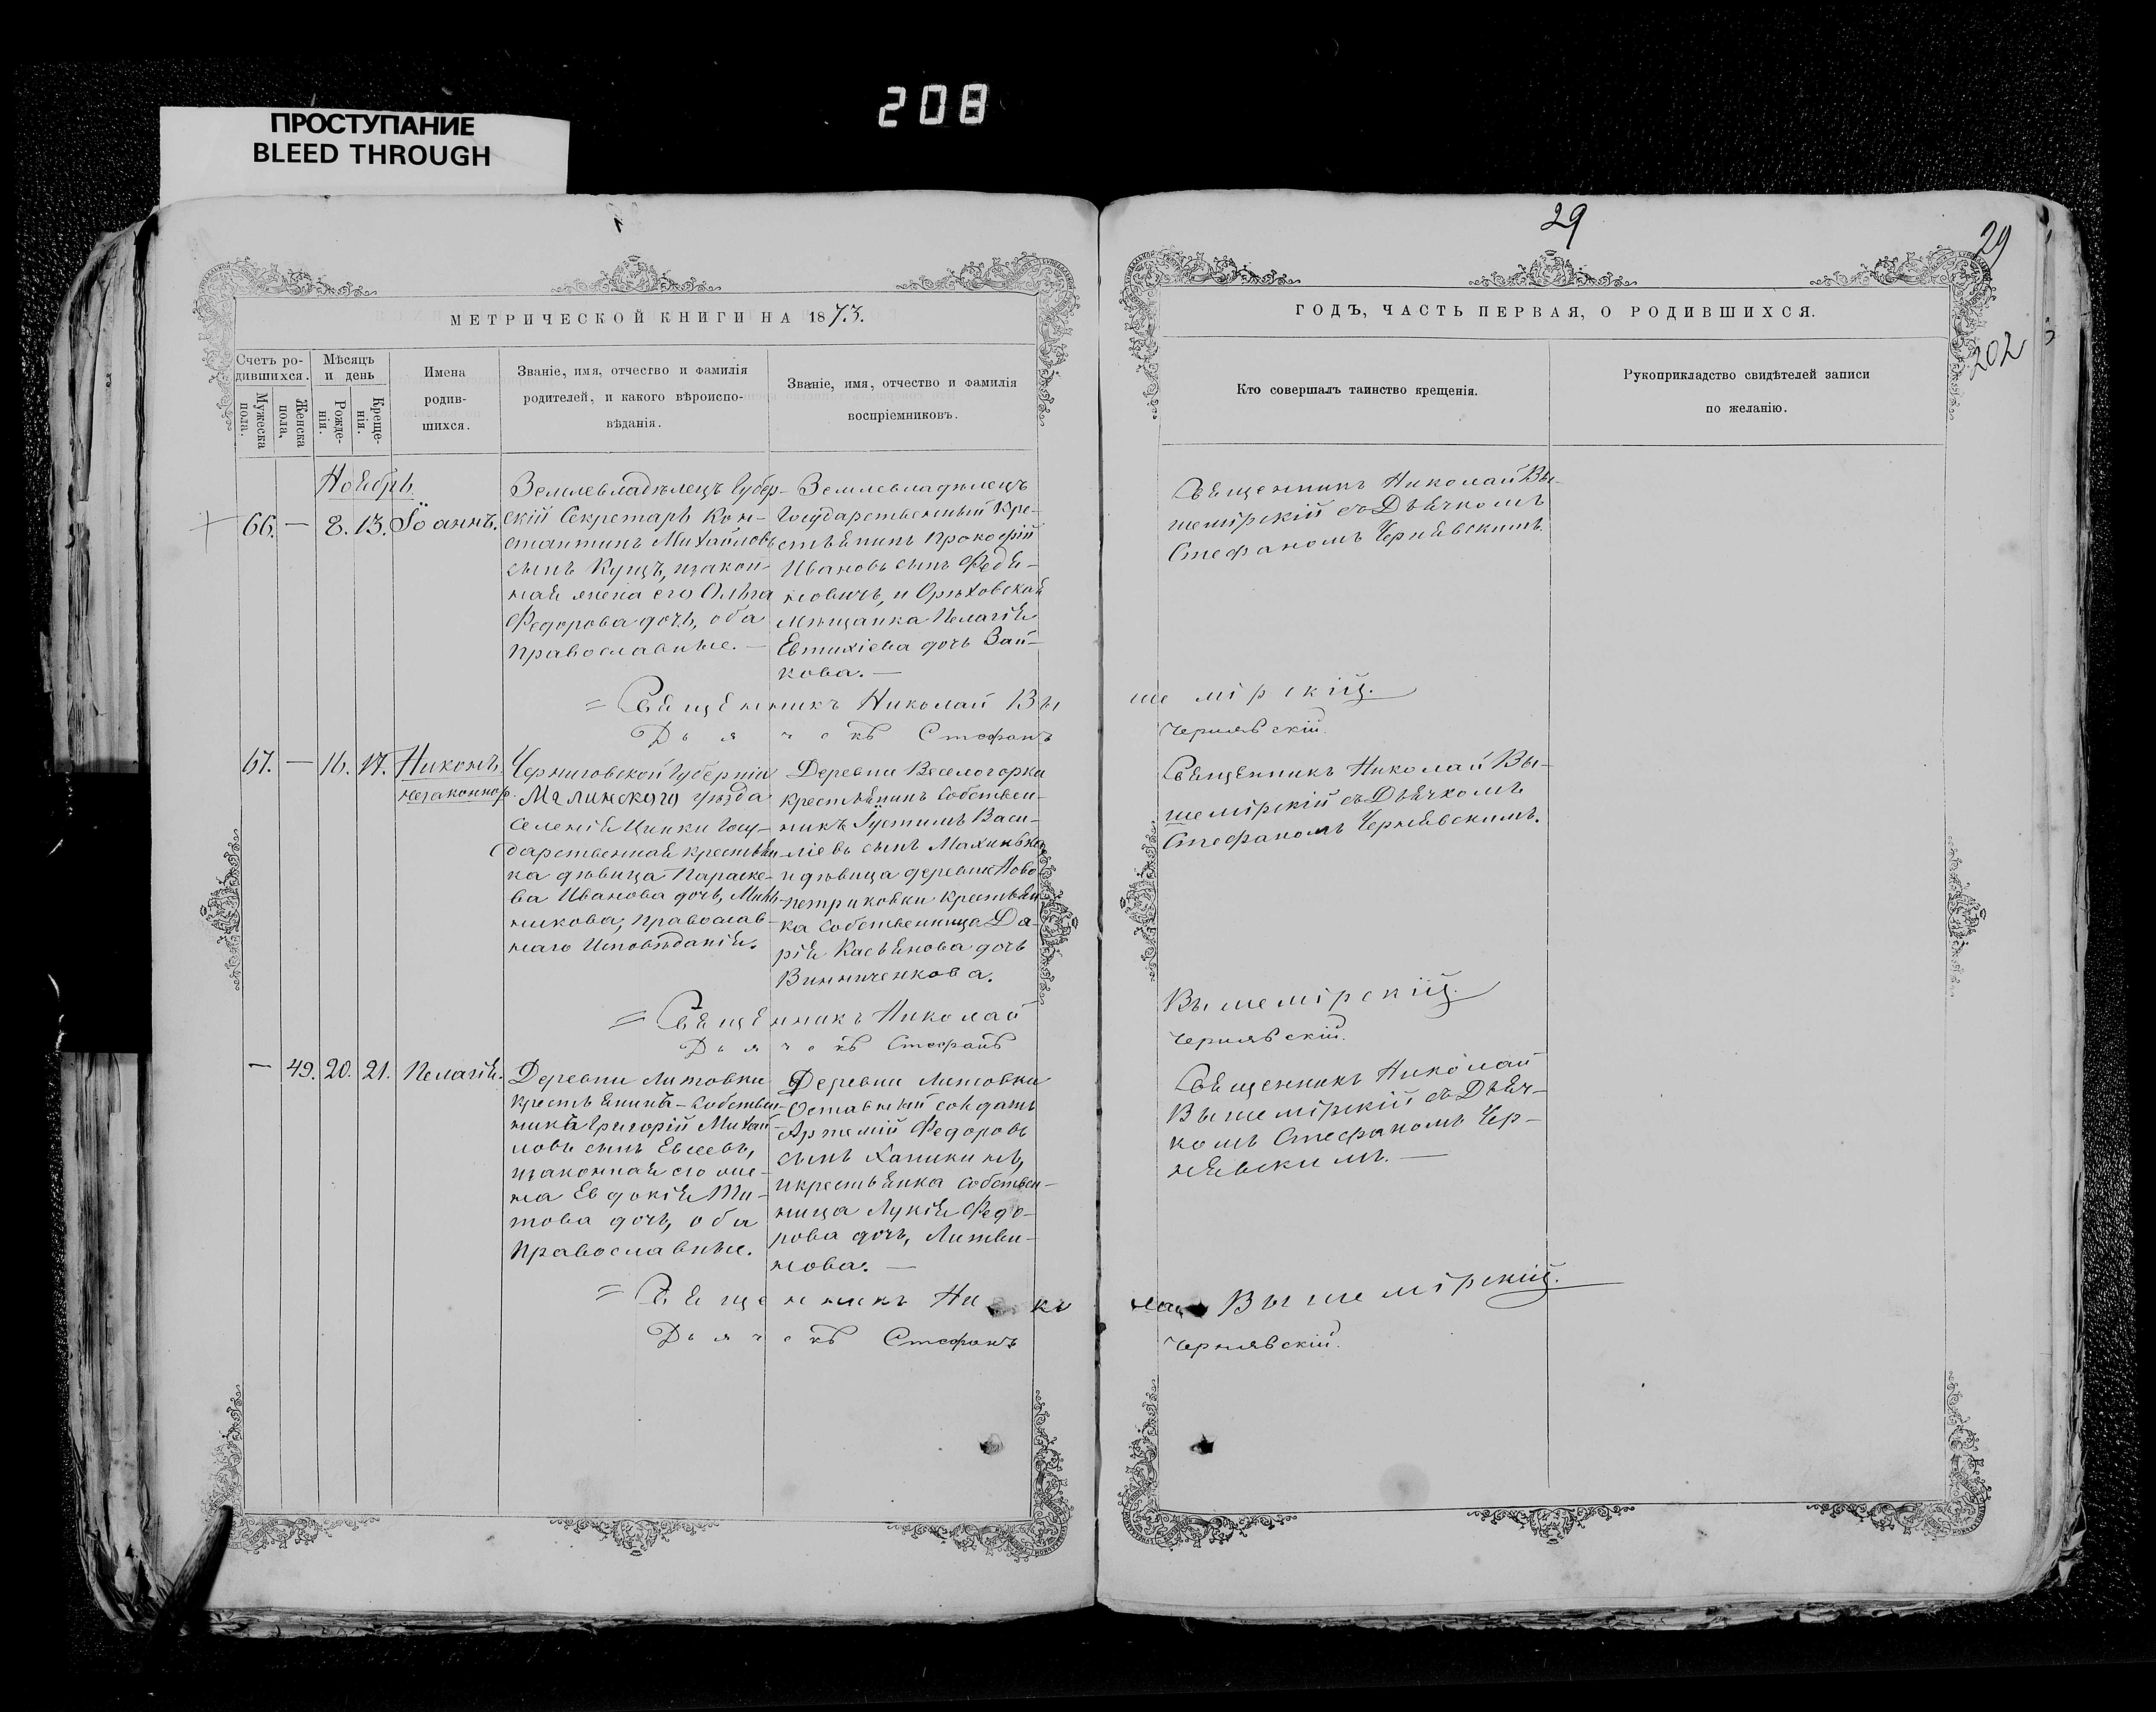 208
ПРОСТУПАНИЕ
BLEED THROUGH
29
29
202
МЕТРИЧЕСКОЙ КНИГИ НА 1873.
Счетъ ро-
дившихся.
Мужеска
пола.
Женска
пола,
Мѣсяцъ
и день
Рожде-
нія.
Креще-
нія.
Имена
родив-
шихся.
Званіе, имя, отчество и фамилія
родителей, и какого вѣроиспо-
вѣданія.
Званіе, имя, отчество и фамилія
воспріемниковъ.
ГОДЪ, ЧАСТЬ ПЕРВАЯ, О РОДИВШИХСЯ.
Кто совершалъ таинство крещенія.
Рукоприкладство свидѣтелей записи
по желанію.
Ноябрь
66. — 8. 13. Іоаннъ.
Землевладѣлецъ Губер-
скій Секретарь Кон-
стантинъ Михайловъ
сынъ Кунцъ, изакон-
ная жена его Ольга
Федорова дочь, оба
православные. —
Землевладѣлецъ
Государственный Кре-
стьянинъ Прокофій
Ивановъ сынъ Федя-
новичъ, и Орѣховская
мѣщанка Пелагія
Евтихіева дочь Зай-
кова. —
Священникъ Николай Вы-
шемірскій съ Дьячкомъ
Стефаномъ Чернявскимъ.
= Священникъ Николай Вы
шемірскій.
Дьячокъ Стефанъ
Чернявскій.
67. — 16. 17. Никонъ.
незаконнор.
Черниговской Губерніи
Малинского уѣзда
селенія Цинки Госу-
дарственная крестьян-
ка дѣвица Параске-
ва Иванова дочь, Мить-
никова, православ-
наго Исповѣданія.
Деревни Веселогорки
крестьянинъ собствен-
никъ Іустимъ Васи-
ліевъ сынъ Махинько
и дѣвица деревни Ново
петриковки крестьян
ка собственница Да-
рія Касьянова дочь
Винниченкова.
Священникъ Николай Вы-
шемірскій съ Дьячкомъ
Стефаномъ Чернявскимъ.
= Священникъ Николай
Вышемірскій.
Дьячокъ Стефанъ
Чернявскій.
— 49. 20. 21. Пелагія.
Деревни Литовки
крестьянинъ-собствен-
никъ Григорій Михай-
ловъ сынъ Евсеевъ,
изаконная его же-
на Евдокія Ти-
това дочь, оба
Православные.
Деревни Литовки
Отставной солдатъ
Артемій Федоровъ
сынъ Хапикинъ,
икрестьянка собствен-
ница Лукія Федо-
рова дочь, Литви-
нова. —
Священникъ Николай
Вышемірскій съ Дьяч-
комъ Стефаномъ Чер-
нявскимъ. —
= Священникъ Нико
лай Вышемірскій.
Дьячокъ Стефанъ
Чернявскій.